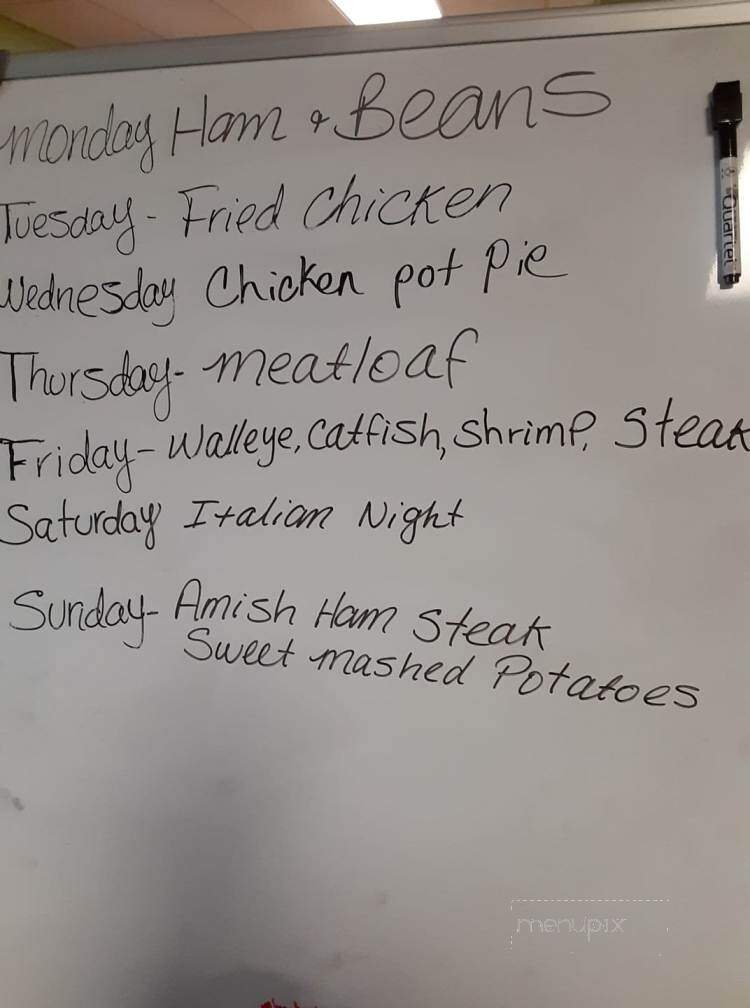 Monday Ham & Beans
Tuesday - Fried Chicken
Wednesday Chicken pot Pie
Thursday - meatloaf
Friday - Walleye, Catfish, Shrimp, Steak
Saturday Italian Night
Sunday - Amish Ham Steak
Sweet mashed Potatoes
Quartet
menupix